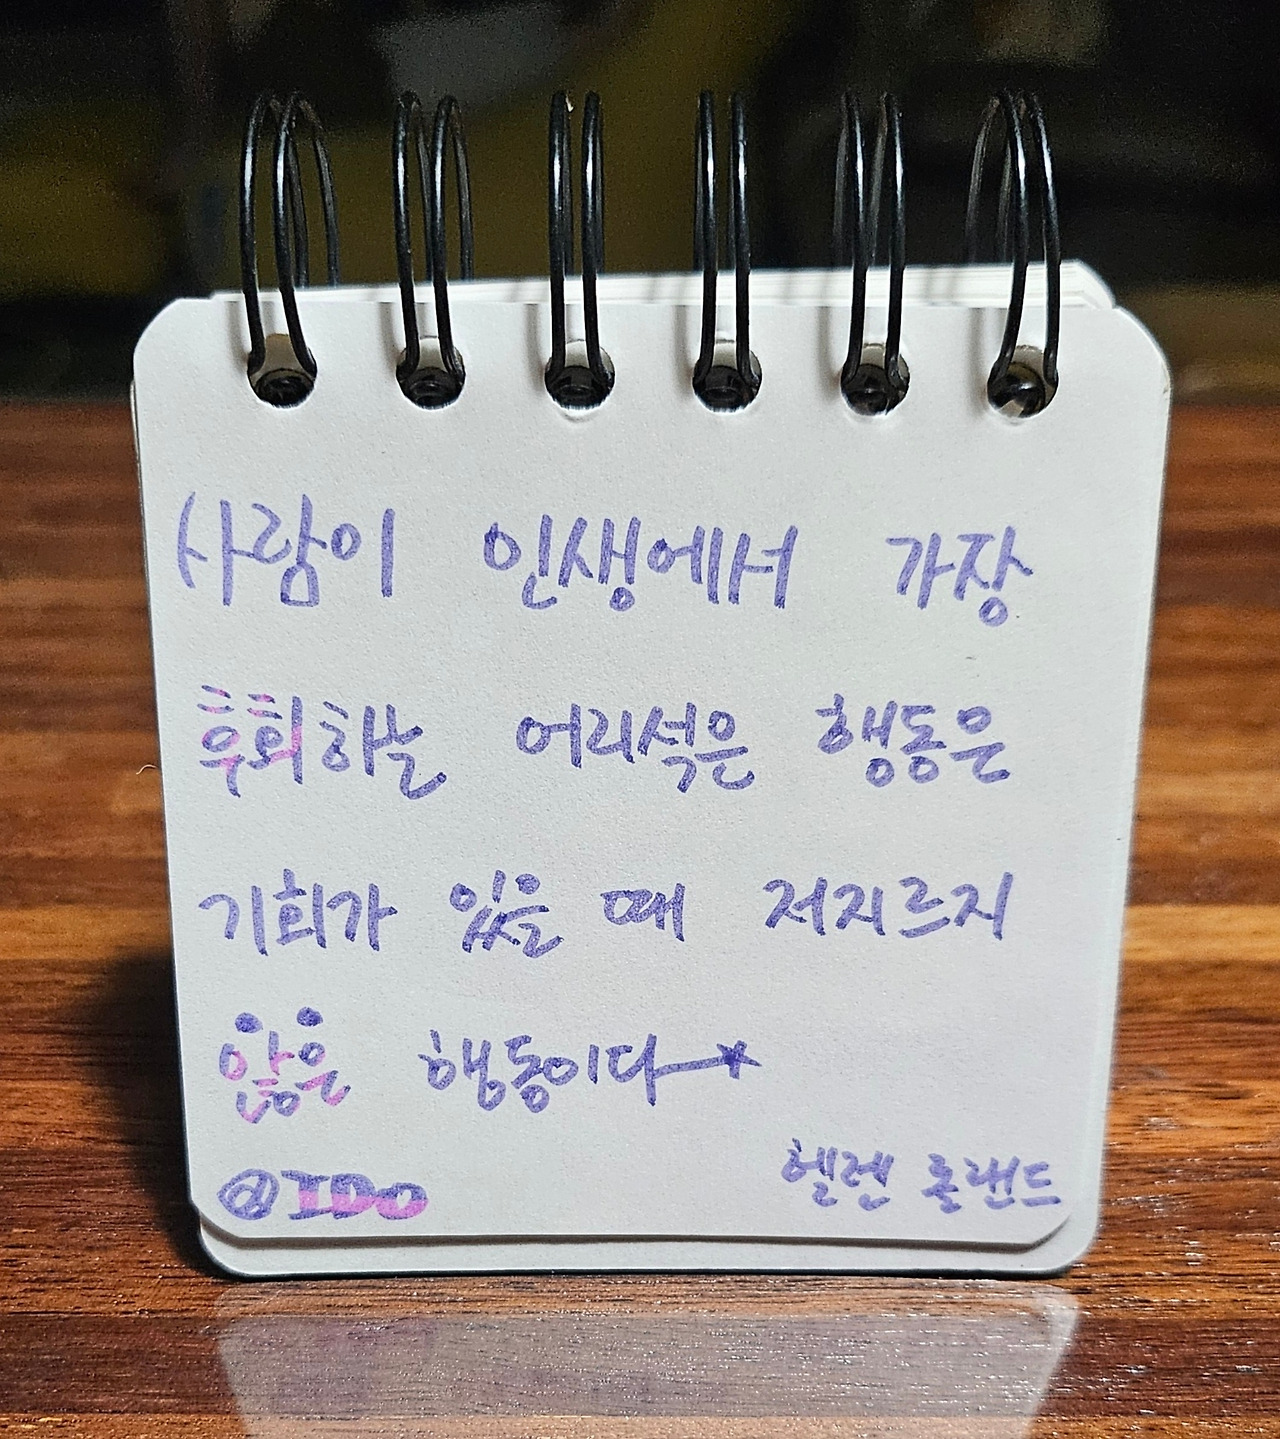 사람이 인생에서 가장
후회하는 어리석은 행동은
기회가 있을 때 저지르지
않은 행동이다
헬렌 롤랜드
@IDO